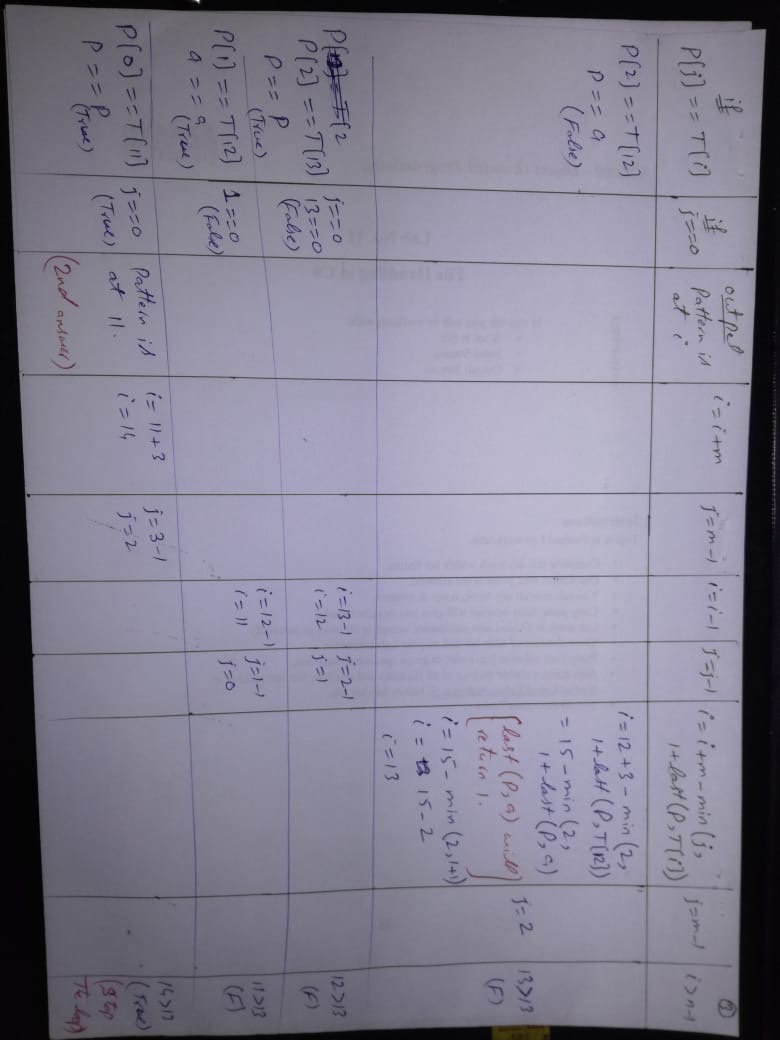 ②
if
P[j] == T[i]
if
j==0
output
Pattern is
at i
i=i+m
j=m-1
i=i-1
j=j-1
i=i+m-min(j,
1+last(P,T[i])
j=m-1
i>n-1
P[2]==T[12]
P == a
(False)
i=12+3- min(2,
1+last(P,T[12])
= 15-min(2,
1+last(P,a)
[last (P,a) will
return 1.]
i=15- min(2,1+1)
i = 15-2
i=13
j=2
13>13
(F)
P[ T[2
P[2] ==T[13]
P == P
(True)
j==0
13==0
(False)
i=13-1
i=12
j=2-1
j=1
12>13
(F)
P[1] == T[12]
a == a
(True)
1==0
(False)
i=12-1
i=11
j=1-1
j=0
11>13
(F)
P[0]==T[11]
P == P
(True)
j==0
(True)
Pattern is
at 11.
(2nd answer)
i= 11+3
i=14
j=3-1
j=2
14>13
(True)
(Stop
The loop)